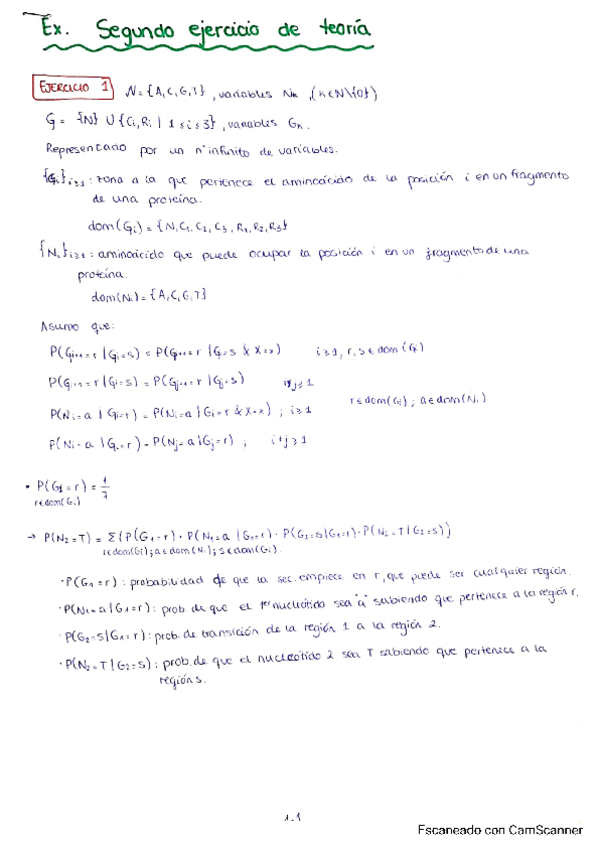 Ex. Segundo ejercicio de teoría
EJERCICIO 1 N = {A, C, G, T}, variables Nk, (k∈N\{0})
G = {N} ∪ {Ci, Ri | 1 ≤ i ≤ 3}, variables Gk.
Representado por un nº infinito de variables.
{Gi}i≥1 : zona a la que pertenece el aminoácido de la posición i en un fragmento
de una proteína.
dom(Gi) = {N, C1, C2, C3, R1, R2, R3}
{Ni}i≥1 : aminoácido que puede ocupar la posición i en un fragmento de una
proteína.
dom(Ni) = {A, C, G, T}
Asumo que:
P(Gi+1=r | Gi=s) = P(Gi+1=r | Gi=s & X=x) i≥1, r,s∈dom(Gi)
P(Gi+1=r | Gi=s) = P(Gj+1=r | Gj=s) i≠j≥1
P(Ni=a | Gi=r) = P(Ni=a | Gi=r & X=x) ; i≥1 r∈dom(Gi); a∈dom(Ni)
P(Ni=a | Gi=r) = P(Nj=a | Gj=r) ; i≠j≥1
• P(G1=r) = 1/7
r∈dom(Gi)
→ P(N2=T) = Σ(P(G1=r)·P(N1=a | G1=r)·P(G2=s|G1=r)·P(N2=T | G2=s))
r∈dom(Gi); a∈dom(Ni); s∈dom(Gi).
·P(G1=r) : probabilidad de que la sec. empiece en r, que puede ser cualquier región.
·P(N1=a | G1=r) : prob de que el 1er nucleótido sea "a" sabiendo que pertenece a la región r.
·P(G2=s | G1=r) : prob. de transición de la región 1 a la región 2.
·P(N2=T | G2=s) : prob. de que el nucleótido 2 sea T sabiendo que pertenece a la
región s.
1.1
Escaneado con CamScanner